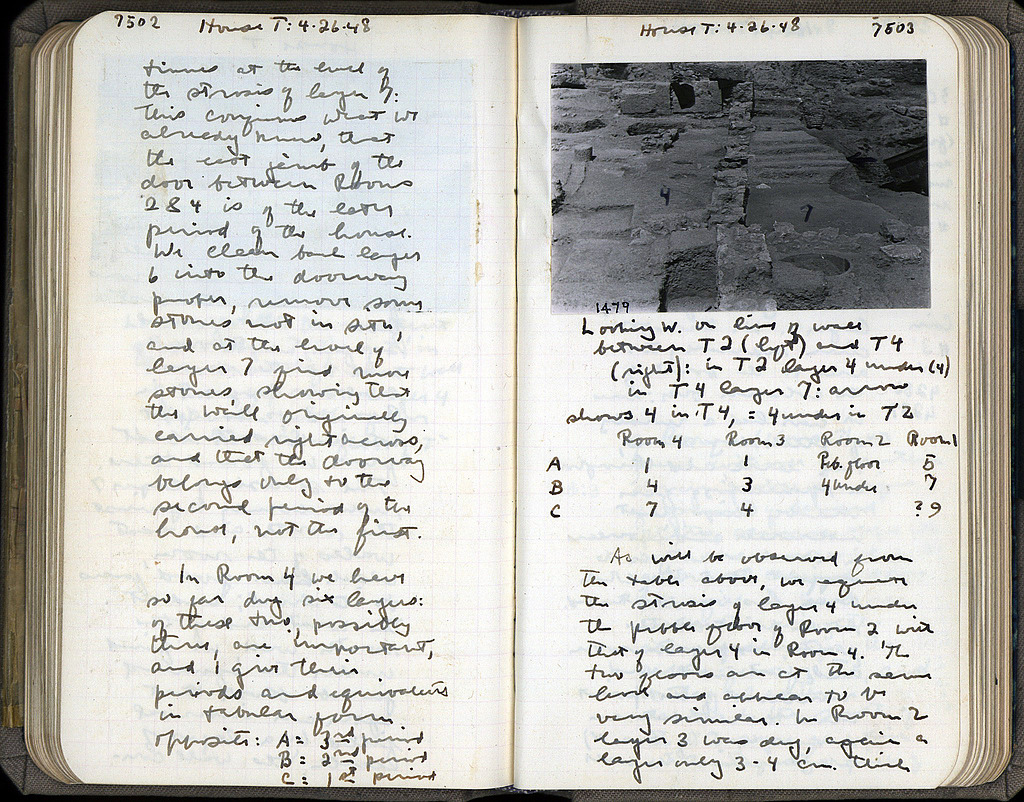 7502 House T: 4-26-48
tinues at the level of
the strosis of layer 7:
this confirms what we
already knew, that
the east jamb of the
door between Rooms
2 & 4 is of the later
period of the house.
We clean back layer
6 into the doorway
proper, remove some
stones not in situ,
and at the level of
layer 7 find more
stones, showing that
the wall originally
carried right across,
and that the doorway
belongs only to the
second period of the
house, not the first.
In Room 4 we have
so far dug six layers:
of these two, possibly
three, are important,
and I give their
periods and equivalents
in tabular form
opposite: A = 3rd period
B = 2nd period
C = 1st period
House T: 4-26-48 7503
4
7
1479
Looking W. on line of wall
between T2 (left) and T4
(right): in T2 layer 4 under (4)
in T4 layer 7: arrow
shows 4 in T4, = 4 under in T2
Room 4 Room 3 Room 2 Room 1
A 1 1 Peb. floor 5
B 4 3 4 under 7
C 7 4 ? 9
As will be observed from
the table above, we equate
the strosis of layer 4 under
the pebble floor of Room 2 with
that of layer 4 in Room 4. The
two floors are at the same
level and appear to be
very similar. In Room 2
layer 3 was dug, again a
layer only 3-4 cm. thick